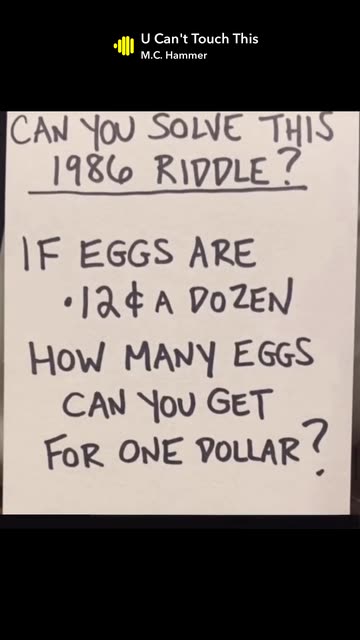 U Can't Touch This
M.C. Hammer
CAN YOU SOLVE THIS
1986 RIDDLE?
IF EGGS ARE
.12¢ A DOZEN
HOW MANY EGGS
CAN YOU GET
FOR ONE DOLLAR?